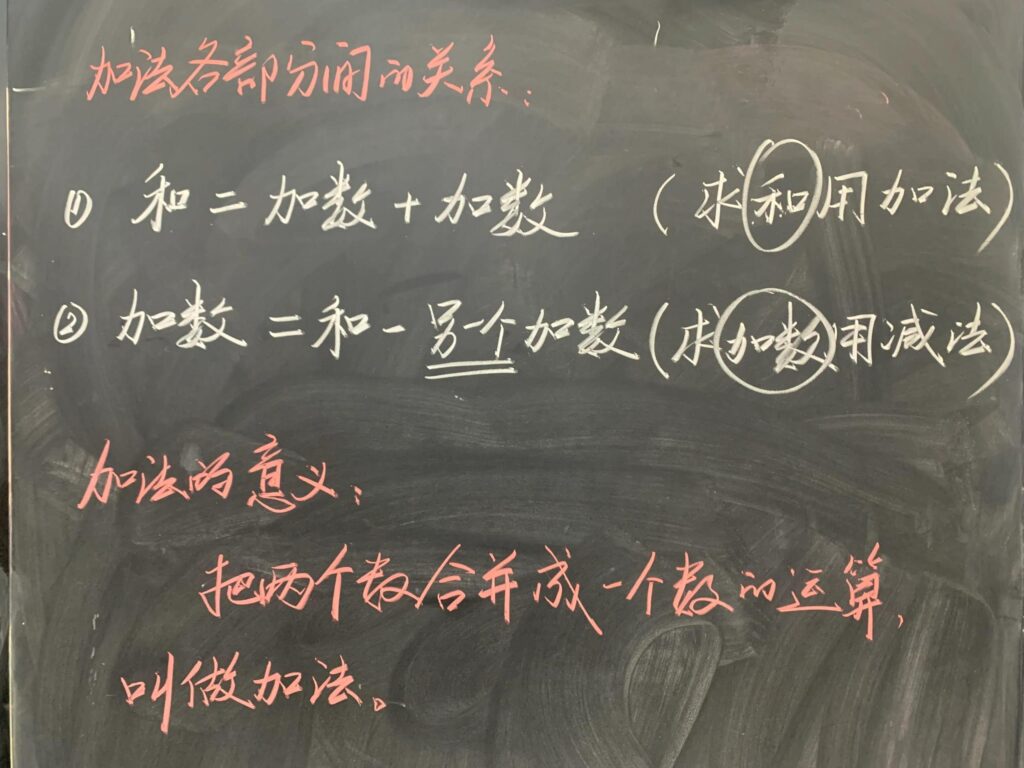 加法各部分间的关系：
① 和=加数+加数 (求和用加法)
② 加数=和-另一个加数(求加数用减法)
加法的意义：
把两个数合并成一个数的运算，
叫做加法。